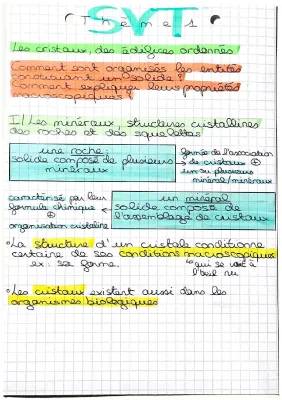 SVT
(Thème 1)
Les cristaux, des édifices ordonnés
Comment sont organisés les entités
constituant un solide ?
Comment expliquer leurs propriétés
macroscopiques ?
I/ Les minéraux, structures cristallines
des roches et des squelettes
une roche:
solide composé de plusieurs
minéraux
formée de l'association
de cristaux
un ou plusieurs
minéral/minéraux
caractérisé par leur
formule chimique
+
organisation cristaline
un minéral
solide composé de
l'assemblage de cristaux
• La structure d'un cristale conditionne
certaine de ses conditions macroscopiques
ex: sa forme.
qui se voit à
l'œil nu
• Les cristaux existent aussi dans les
organismes biologiques